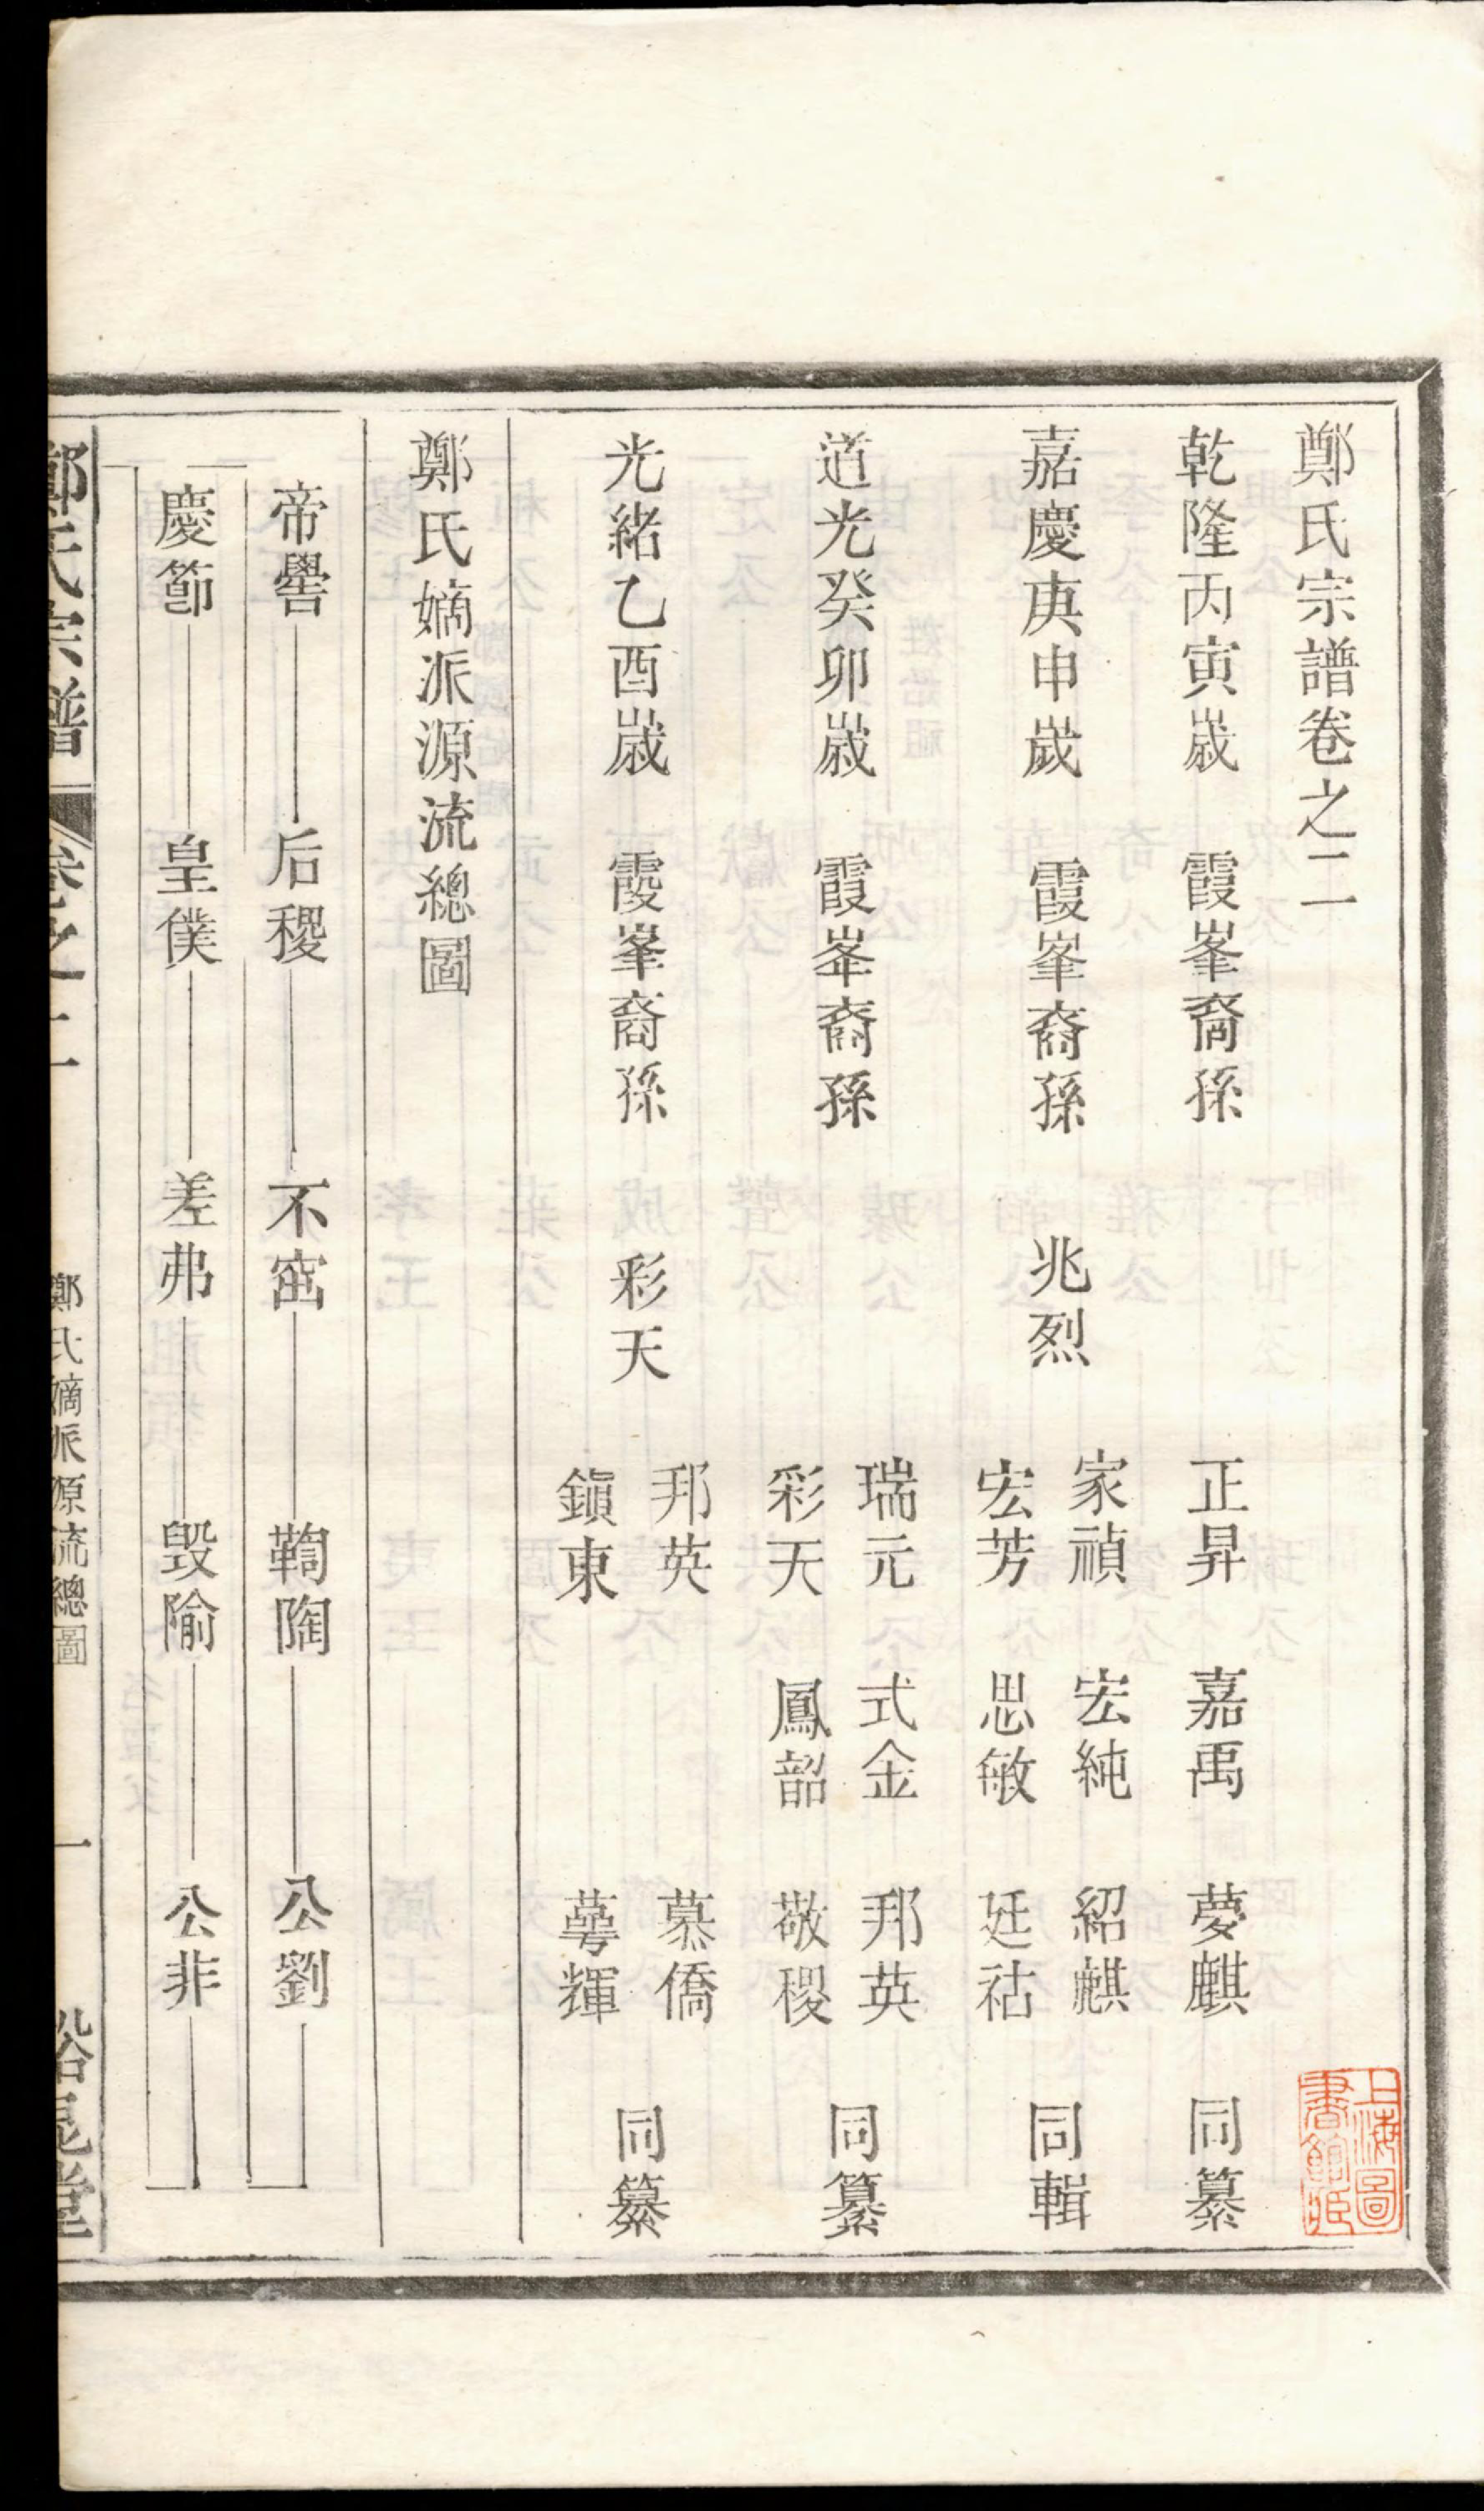 鄭氏宗譜卷之二
乾隆丙寅歲 霞峯裔孫 正昇 嘉禹 夢麒 同纂
嘉慶庚申歲 霞峯裔孫 兆烈 家禎 宏純 紹麒 宏芳 思敏 廷祜 同輯
道光癸卯歲 霞峯裔孫 瑞元 式金 邦英 彩天 鳳韶 敬稷 同纂
光緒乙酉歲 霞峯裔孫 彩天 邦英 慕僑 鎮東 萼輝 同纂
鄭氏嫡派源流總圖
帝嚳 后稷 不窋 鞫陶 公劉
慶節 皇僕 差弗 毀隃 公非
鄭氏宗譜 卷之二 鄭氏嫡派源流總圖 一 裕昆堂
上海圖書館藏